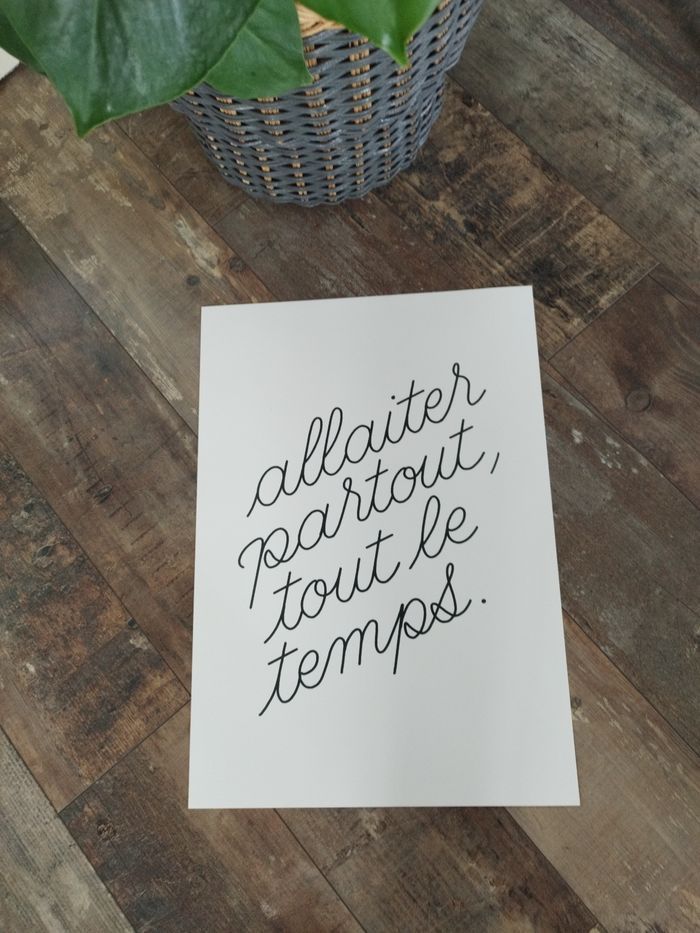 allaiter
partout,
tout le
temps.